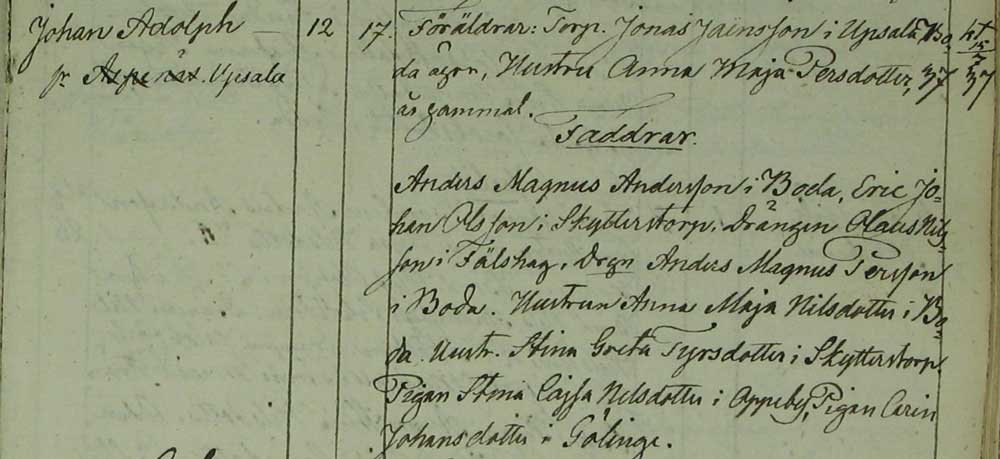 Johan Adolph — 12 17. Föräldrar: Torp. Jonas Jaensson i Upsala, Bo=
fr. Aspenäs. Upsala da ägor, Hustru Anna Maja Persdotter, 37
år gammal.
Faddrar.
Anders Magnus Andersson i Boda, Eric Jo=
han Olsson i Skytterstorp. Drängen Olaus Nils=
son i Fälshag, Drgn Anders Magnus Persson
i Boda. Hustrun Anna Maja Nilsdotter i Bo=
da. Hustr. Stina Greta Tyrsdotter i Skytterstorp.
Pigan Stina Cajsa Nilsdotter i Appeby, Pigan Carin
Johansdotter i Gölinge.